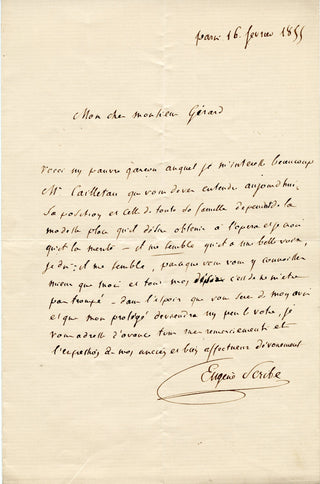 paris 16. février 1855
Mon cher monsieur Gérard
voici un pauvre garçon auquel je m'intéresse beaucoup
Mr Cailletau que vous devez entendre aujourd'hui.
Sa position et celle de toute sa famille dépendent de la
modeste place qu'il désire obtenir à l'opéra et je crois
qu'il la mérite - il me semble qu'il a une belle voix,
je dis: il me semble, parceque vous vous y connaissez
mieux que moi et tous mes désirs c'est de ne m'être
pas trompé - dans l'espoir que vous serez de mon avis
et que mon protégé deviendra un peu le votre, je
vous adresse d'avance tous mes remerciements et
l'expression de mes anciens et bien affectueux dévouement
Eugène Scribe